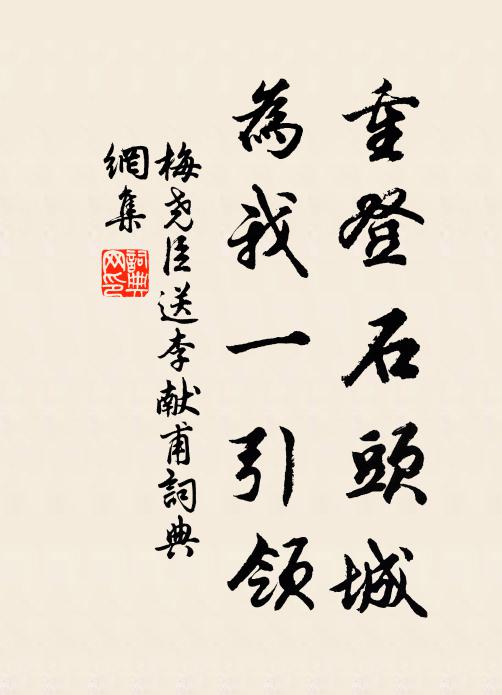 重登石頭城
為我一引領
梅尧臣送李献甫詞典
網集
詞典网印